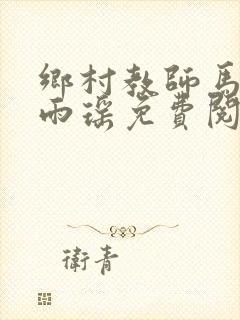 鄉村教師馬
雨瑤免費閱
衛青